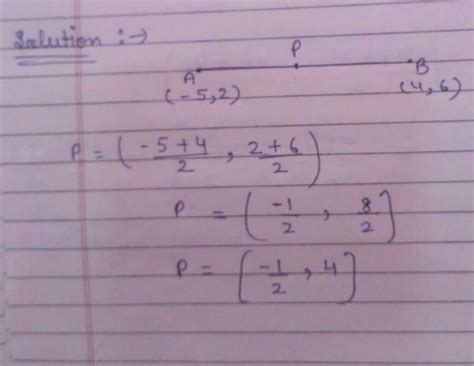 Solution :->
P
A B
(-5,2) (4,6)
P = ( -5+4/2 , 2+6/2 )
P = ( -1/2 , 8/2 )
P = [ -1/2 , 4 ]